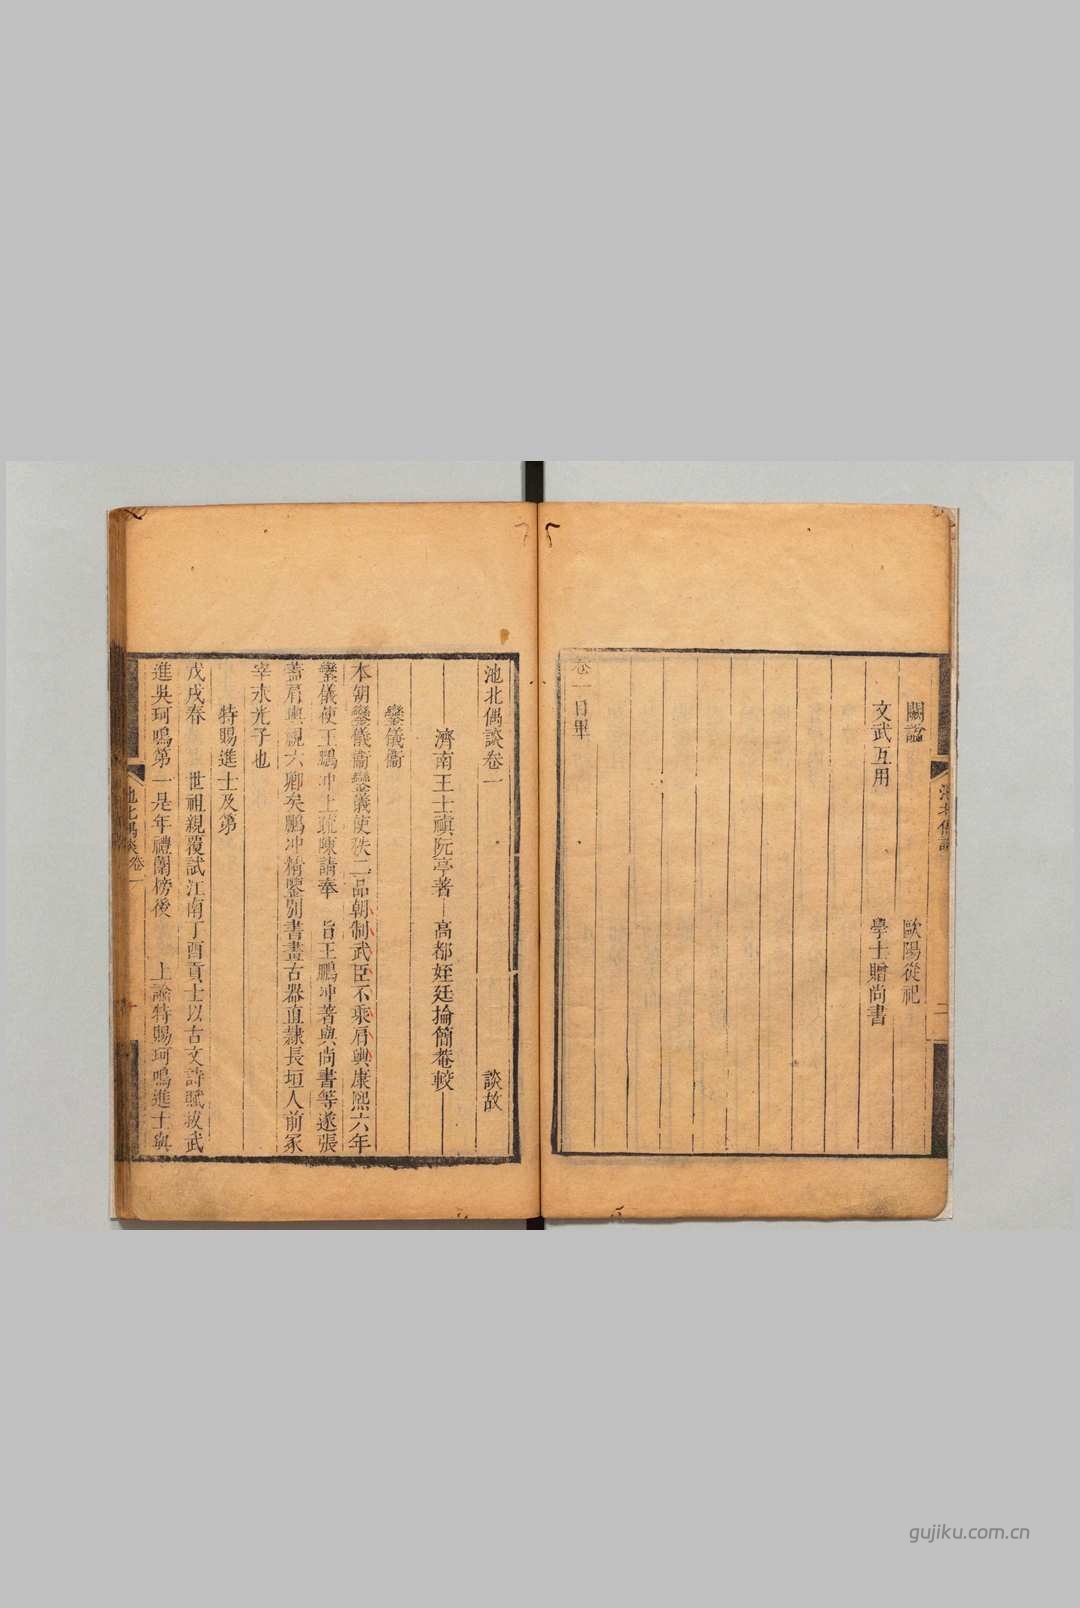 闕譌 歐陽從祀
文武互用 學士贈尚書
卷一目畢
池北偶談卷一 談故
濟南王士禛阮亭著 高都姪廷掄簡菴較
鑾儀衞
本朝鑾儀衞鑾儀使秩二品朝制武臣不乘肩輿康熙六年
鑾儀使王鵬冲上疏陳請奉 旨王鵬冲著與尚書等遂張
葢肩輿視六卿矣鵬冲精鑒别書畫古器直隷長垣人前冢
宰永光子也
特賜進士及第
戊戌春 世祖親覆試江南丁酉貢士以古文詩賦拔武
進吳珂鳴第一是年禮闈榜後 上諭特賜珂鳴進士與
池北偶談卷一
gujiku.com.cn